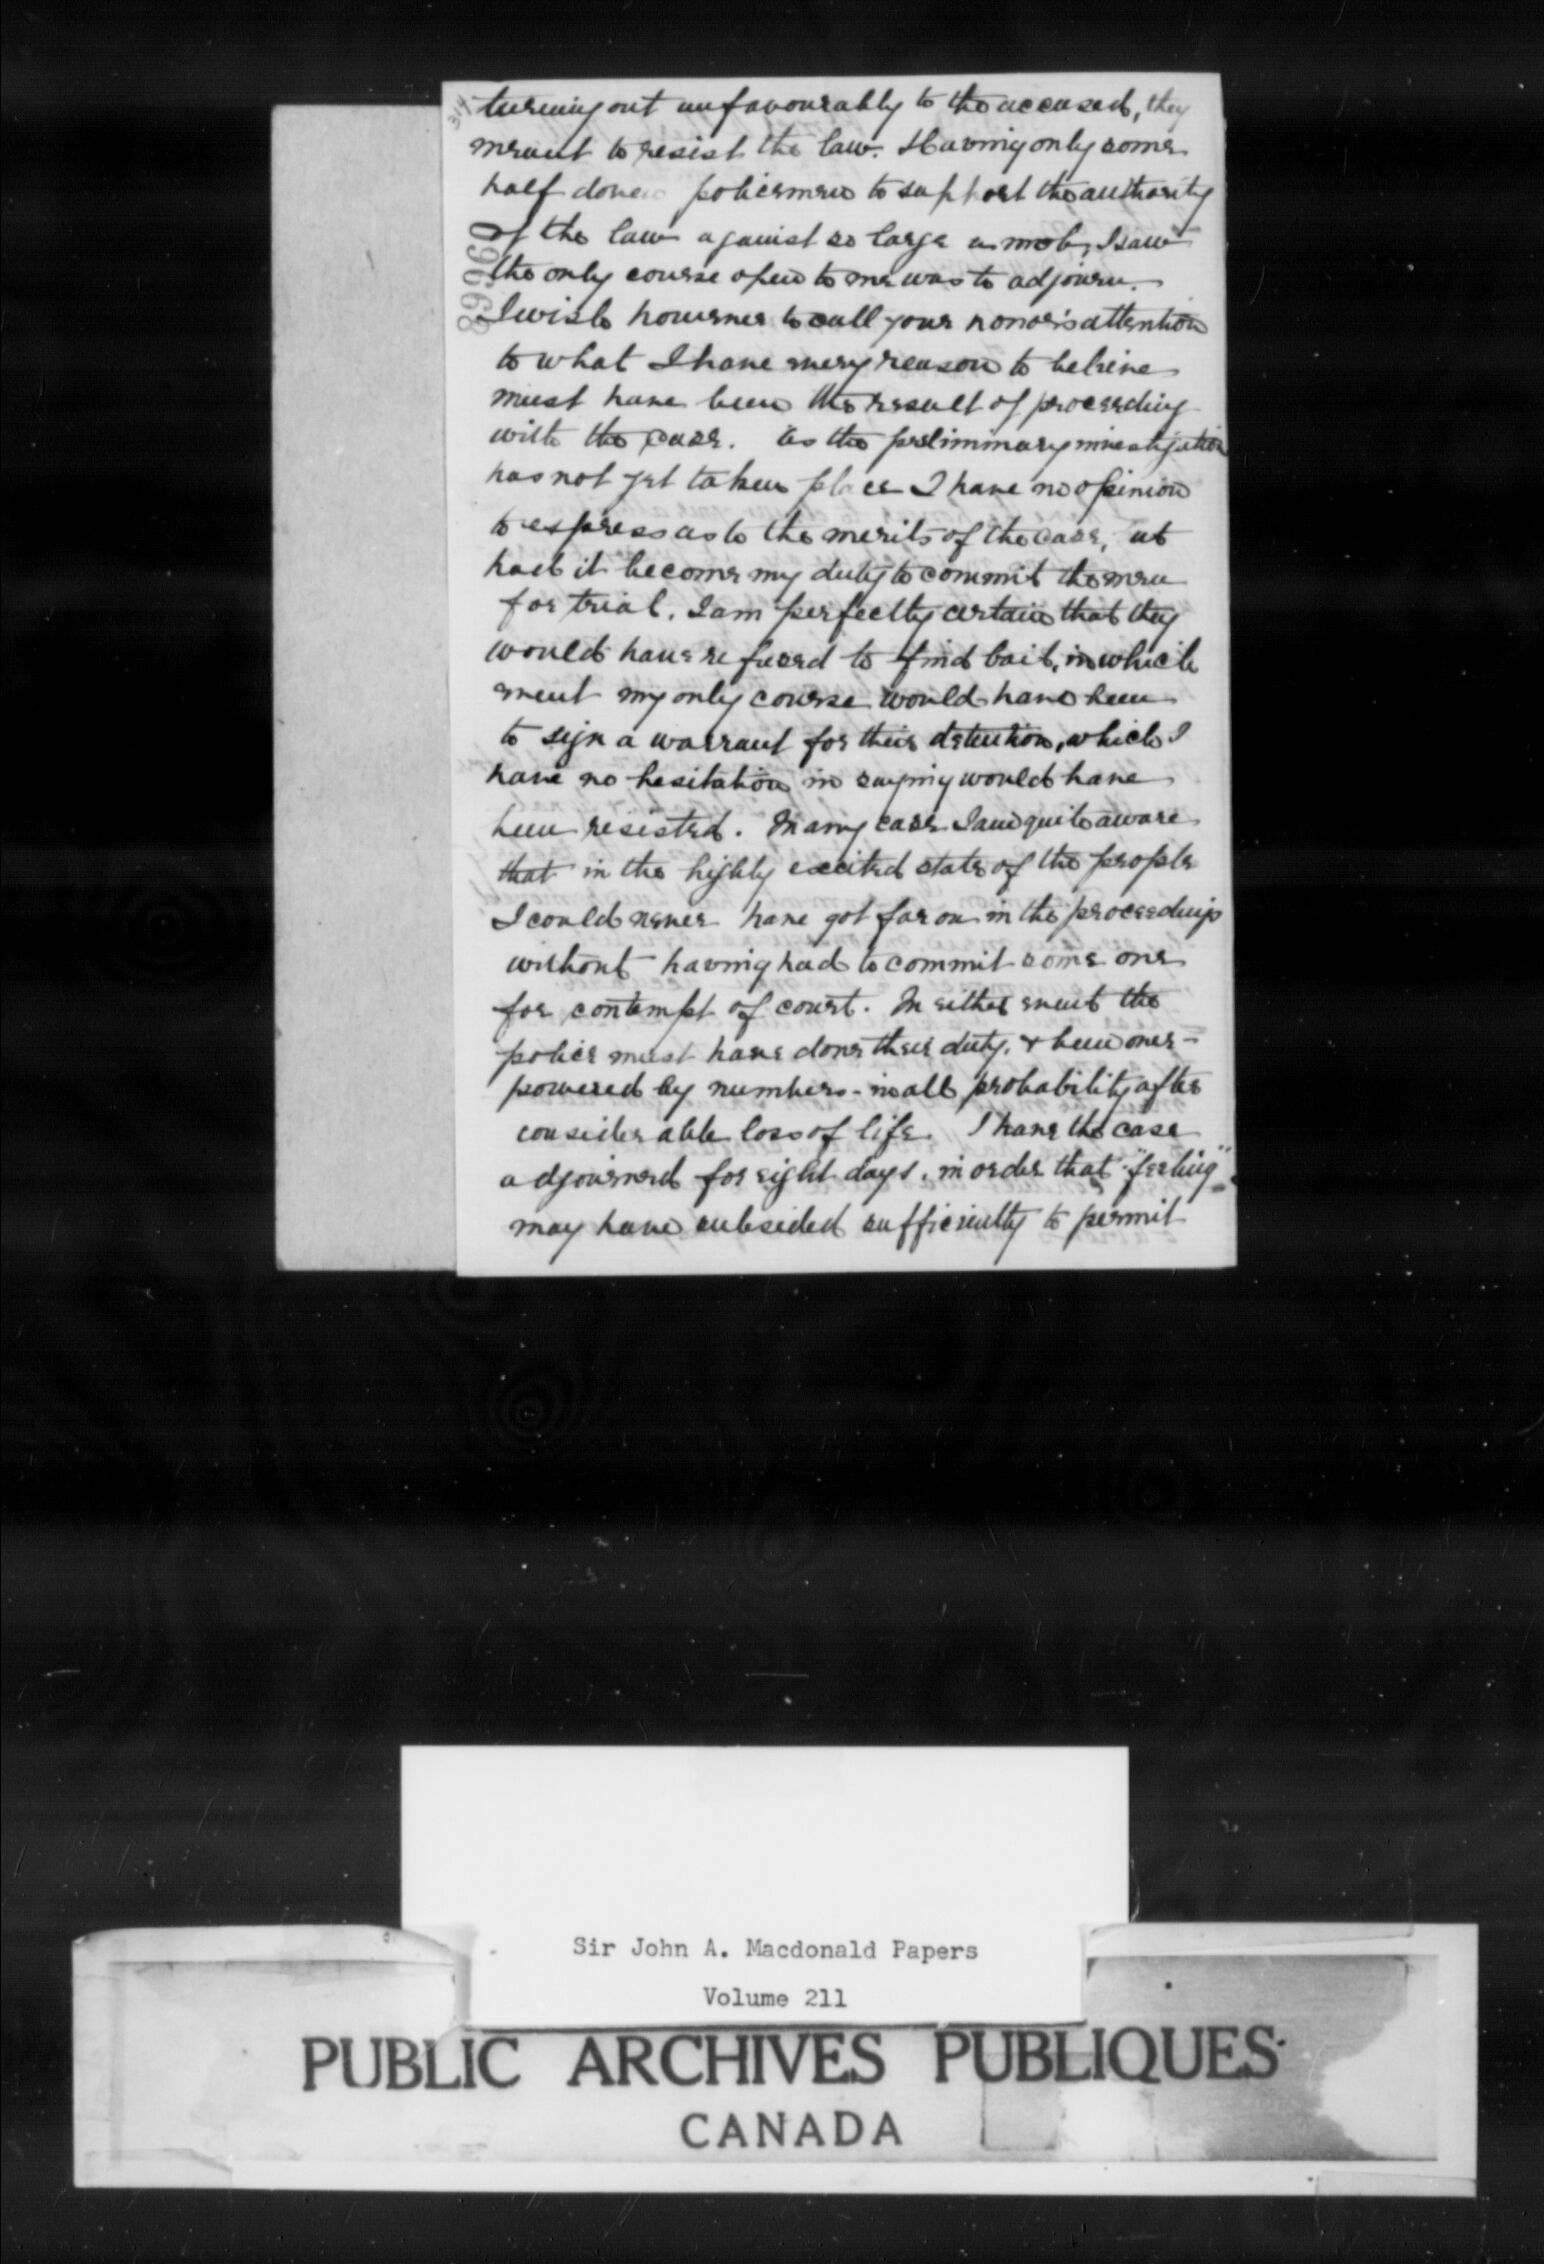 turning out unfavourably to the accused, they
meant to resist the law. Having only some
half dozen policemen to support the authority
of the law against so large a mob, I saw
the only course open to me was to adjourn.
I wish however to call your honor's attention
to what I have every reason to believe
must have been the result of proceeding
with the case. As the preliminary investigation
has not yet taken place I have no opinion
to express as to the merits of the case, but
had it become my duty to commit the men
for trial, I am perfectly certain that they
would have refused to find bail, in which
event my only course would have been
to sign a warrant for their detention, which I
have no hesitation in saying would have
been resisted. In any case I am quite aware
that in the highly excited state of the people
I could never have got far on in the proceedings
without having had to commit some one
for contempt of court. In either event the
police must have done their duty, & been over-
powered by numbers - in all probability after
considerable loss of life. I have the case
adjourned for eight days, in order that "feeling"
may have subsided sufficiently to permit
89960
Sir John A. Macdonald Papers
Volume 211
PUBLIC ARCHIVES PUBLIQUES
CANADA